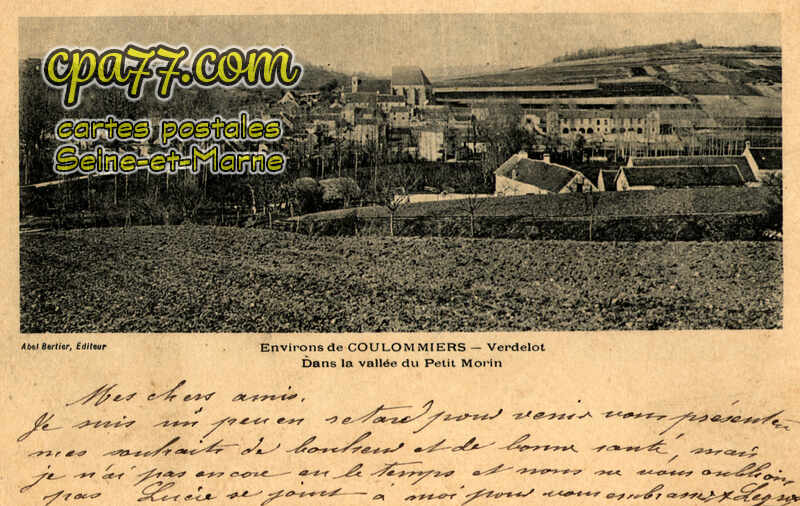 cpa77.com
cartes postales
Seine-et-Marne
Abel Bertier, Editeur
Environs de COULOMMIERS — Verdelot
Dans la vallée du Petit Morin
Mes chers amis.
Je suis un peu en retard pour venir vous présenter
mes souhaits de bonheur et de bonne santé, mais
je n'ai pas encore eu le temps et nous ne vous oublions
pas Lucie se joint a moi pour vous embrasser